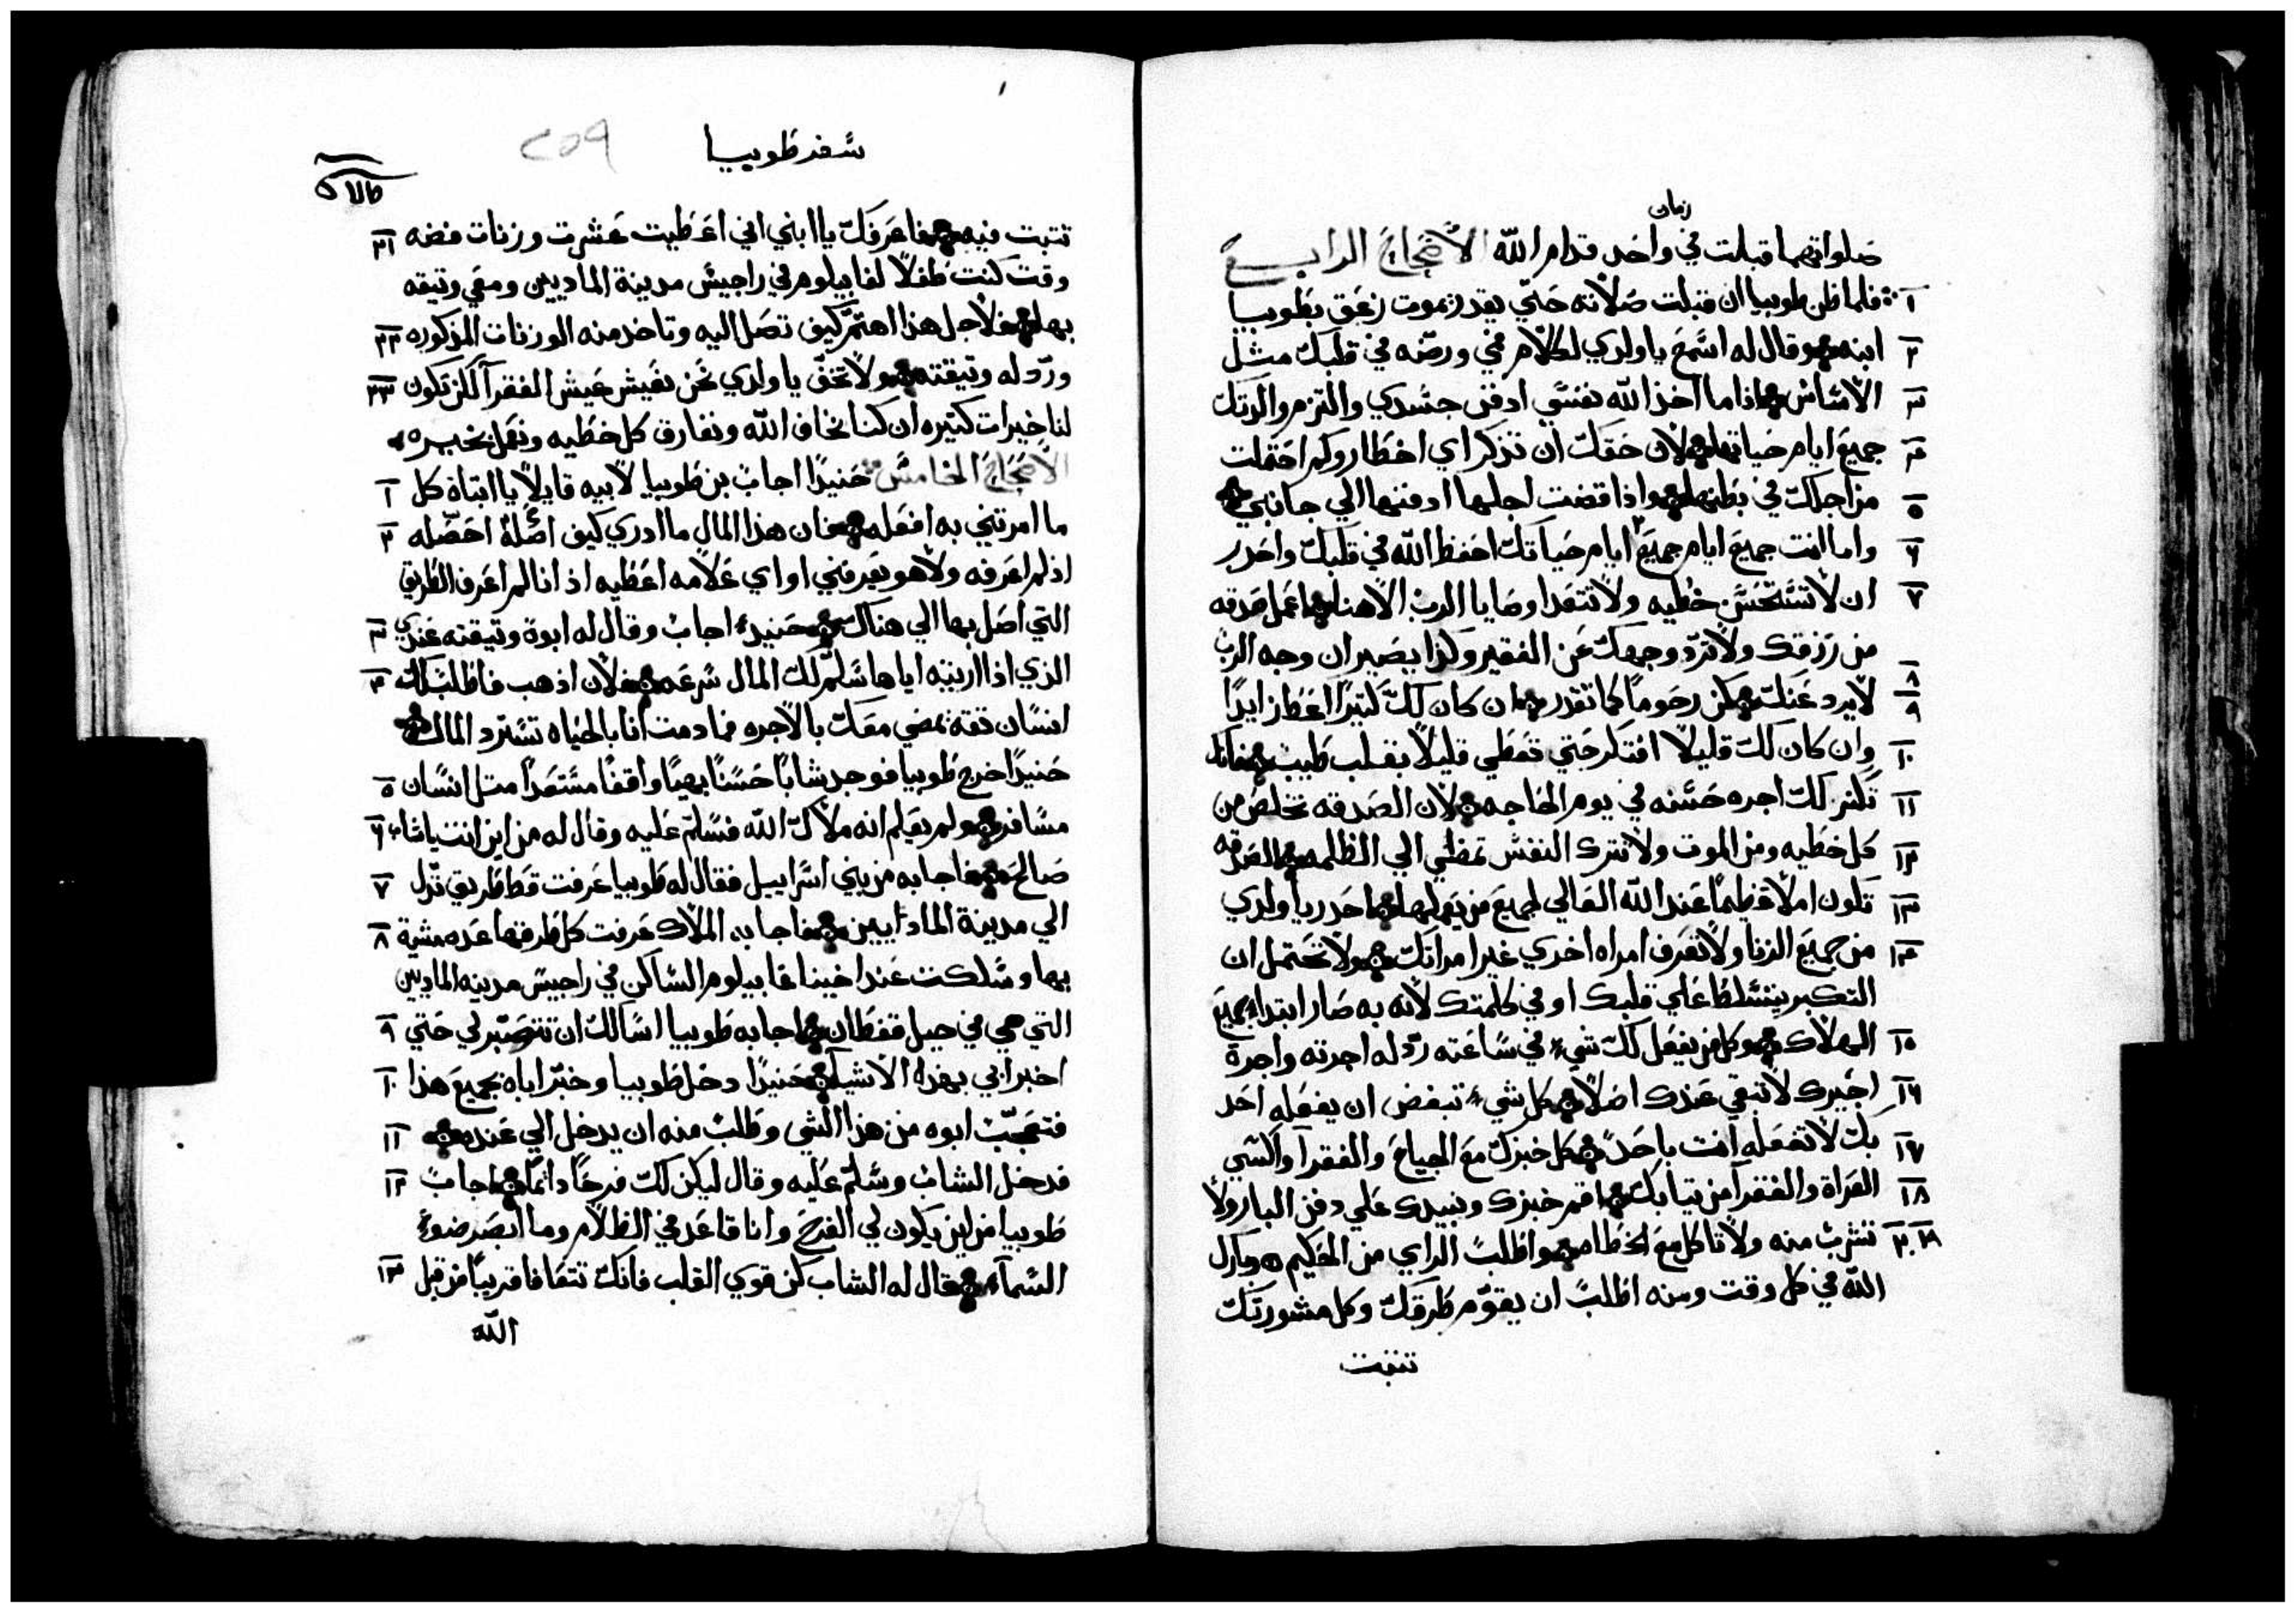 زمان
صلواتهما قبلت في واحد قدام الله الأصحاح الرابع
١ فلما ظن طوبيا ان قبلت صلاته حتي يقدر يموت زعق بطوبيا
٢ ابنه وقال له اسمع يا ولدي لكلام فمي ورصه في قلبك مثل
٣ الاساس اذا ما اخذ الله نفسي ادفن جسدي والتزم والدتك
٤ جميع ايام حياتها لان حقك ان تذكر اي اخطار وكم احتملت
٥ من اجلك في بطنها واذا قضت اجلها ادفنها الي جانبي
٦ واما انت جميع ايام جميع ايام حياتك احفظ الله في قلبك واحدر
٧ ان لا تستحسن خطيه ولا تتعدا وصايا الرب الاهنا اعمل صدقه
من رزقك ولا ترد وجهك عن الفقير وكذا يصير ان وجه الرب
٨ ٩ لا يرد عنك كن رحوما كما تقدر ان كان لك كتيرا اعط زايدا
١٠ وان كان لك قليلا افتكر حتي تعطي قليلا بقلب طيب فانك
١١ تكنز لك اجره حسنه في يوم الحاجه لان الصدقه تخلص من
١٢ كل خطيه ومن الموت ولا تترك النفس تمضي الي الظلمه الصدقه
١٣ تكون املا عظيما عند الله العالي لجميع من يعملها احدر يا ولدي
١٤ من جميع الزنا ولا تعرف امراه اخري غير امراتك ولا تحتمل ان
التكبر يتسلط علي قلبك او في كلمتك لانه به صار ابتداء جميع
١٥ الهلاك وكل من يفعل لك شيء في ساعته رد له اجرته واجرة
١٦ اجيرك لا تبقي عندك اصلا كل شيء تبغض ان يفعله احد
١٧ بك لا تفعله انت باحد كل خبزك مع الجياع والفقرآ واكسي
١٨ العراة والفقرآ من تيابك اقم خبزك ونبيدك علي دفن البار ولا
١٩ ٢٠ تشرب منه ولا تاكل مع الخطاه واطلب الراي من الحكيم وبارك
الله في كل وقت ومنه اطلب ان يقوم طرقك وكل مشورتك
تتبت
سفر طوبيا ٢٥٩
تتبت فيه فاعرفك يا ابني اني اعطيت عشرت وزنات فضه ٢١
وقت كنت طفلا لغابيلوم في راجيس مدينة الماديين ومعي وتيقه
بها فلاجل هذا اهتم كيف تصل اليه وتاخد منه الوزنات المذكوره ٢٢
ورد له وتيقته ولا تخف يا ولدي نحن نعيش عيش الفقرآ لكن تكون ٢٣
لنا خيرات كتيره ان كنا نخاف الله ونفارق كل خطيه ونعمل بخير
الأصحاح الخامس حنيدا اجاب بن طوبيا لابيه قايلا يا ابتاه كل ١
ما امرتني به افعله فان هذا المال ما ادري كيف اصله احصله ٢
اذ لم اعرفه ولا هو يعرفني او اي علامه اعطيه اذ انا لم اعرف الطريق
التي اصل بها الي هناك حنيد اجاب وقال له ابوه وتيقته عندي ٣
الذي اذا اريته اياها سلم لك المال سرعه فلان اذهب فاطلب لك ٤
انسان تقه يمضي معك بالاجره فما دمت انا بالحياه تسترد المال
حنيدا خرج طوبيا فوجد شابا حسنا بهيا واقفا مستعدا متل انسان ٥
مسافر ولم يعلم انه ملاك الله فسلم عليه وقال له من اين انت يا شاب ٦
صالح فاجابه من بني اسراييل فقال له طوبيا عرفت قط طريق تدل ٧
الي مدينة الماداييين فاجابه الملاك عرفت كل طرقها عده مشية ٨
بها وسلكت عند اخينا غابيلوم الساكن في راجيس مدينه الماديين
التي هي في جبل قفطان اجابه طوبيا اسالك ان تتصبر لي حتي ٩
اخبر ابي بهذه الاشيآ حنيدا دخل طوبيا وخبر اباه بجميع هذا ١٠
فتعجب ابوه من هذا الشي وطلب منه ان يدخل الي عنده ١١
فدخل الشاب وسلم عليه وقال ليكن لك فرحا دائما اجاب ١٢
طوبيا من اين يكون لي الفرح وانا قاعد في الظلام وما ابصر ضوء
السمآء فقال له الشاب كن قوي القلب فانك تتعافا قريبا من قبل ١٣
الله